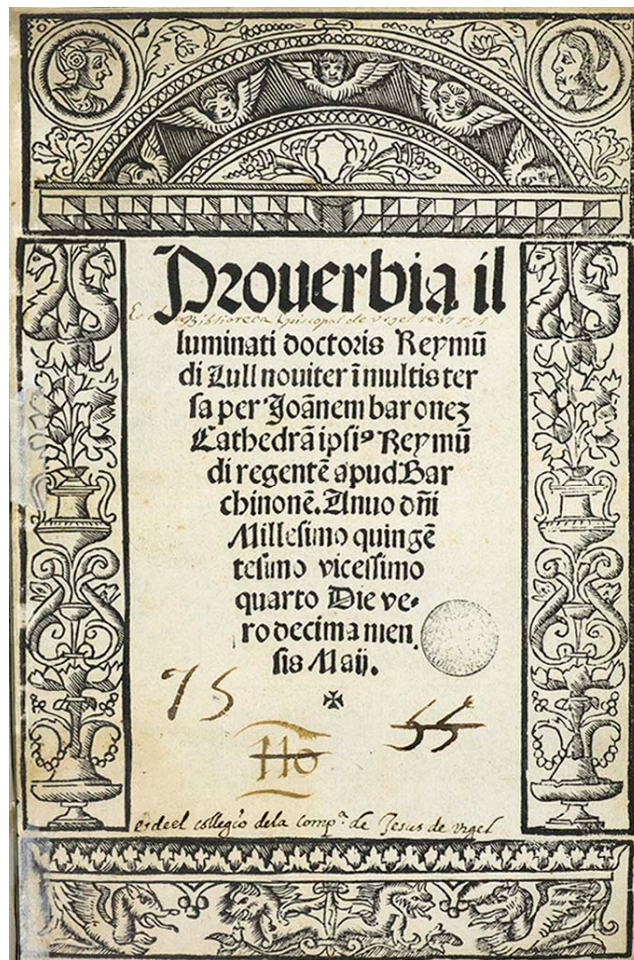 Prouerbia il
Biblioteca Episcopal de Urgel
luminati doctoris Reymū
di Lull noviter ī multis ter
sa per Joānem baronez
Cathedrā ipsiꝰ Reymū
di regentē apud Bar
chinonē. Anuo dñi
Millesimo quingē
tesimo vicessimo
quarto Die ve-
ro decima men
sis Maij.
75
55
110
es del collegio dela Comp.ª de Jesus de vrgel